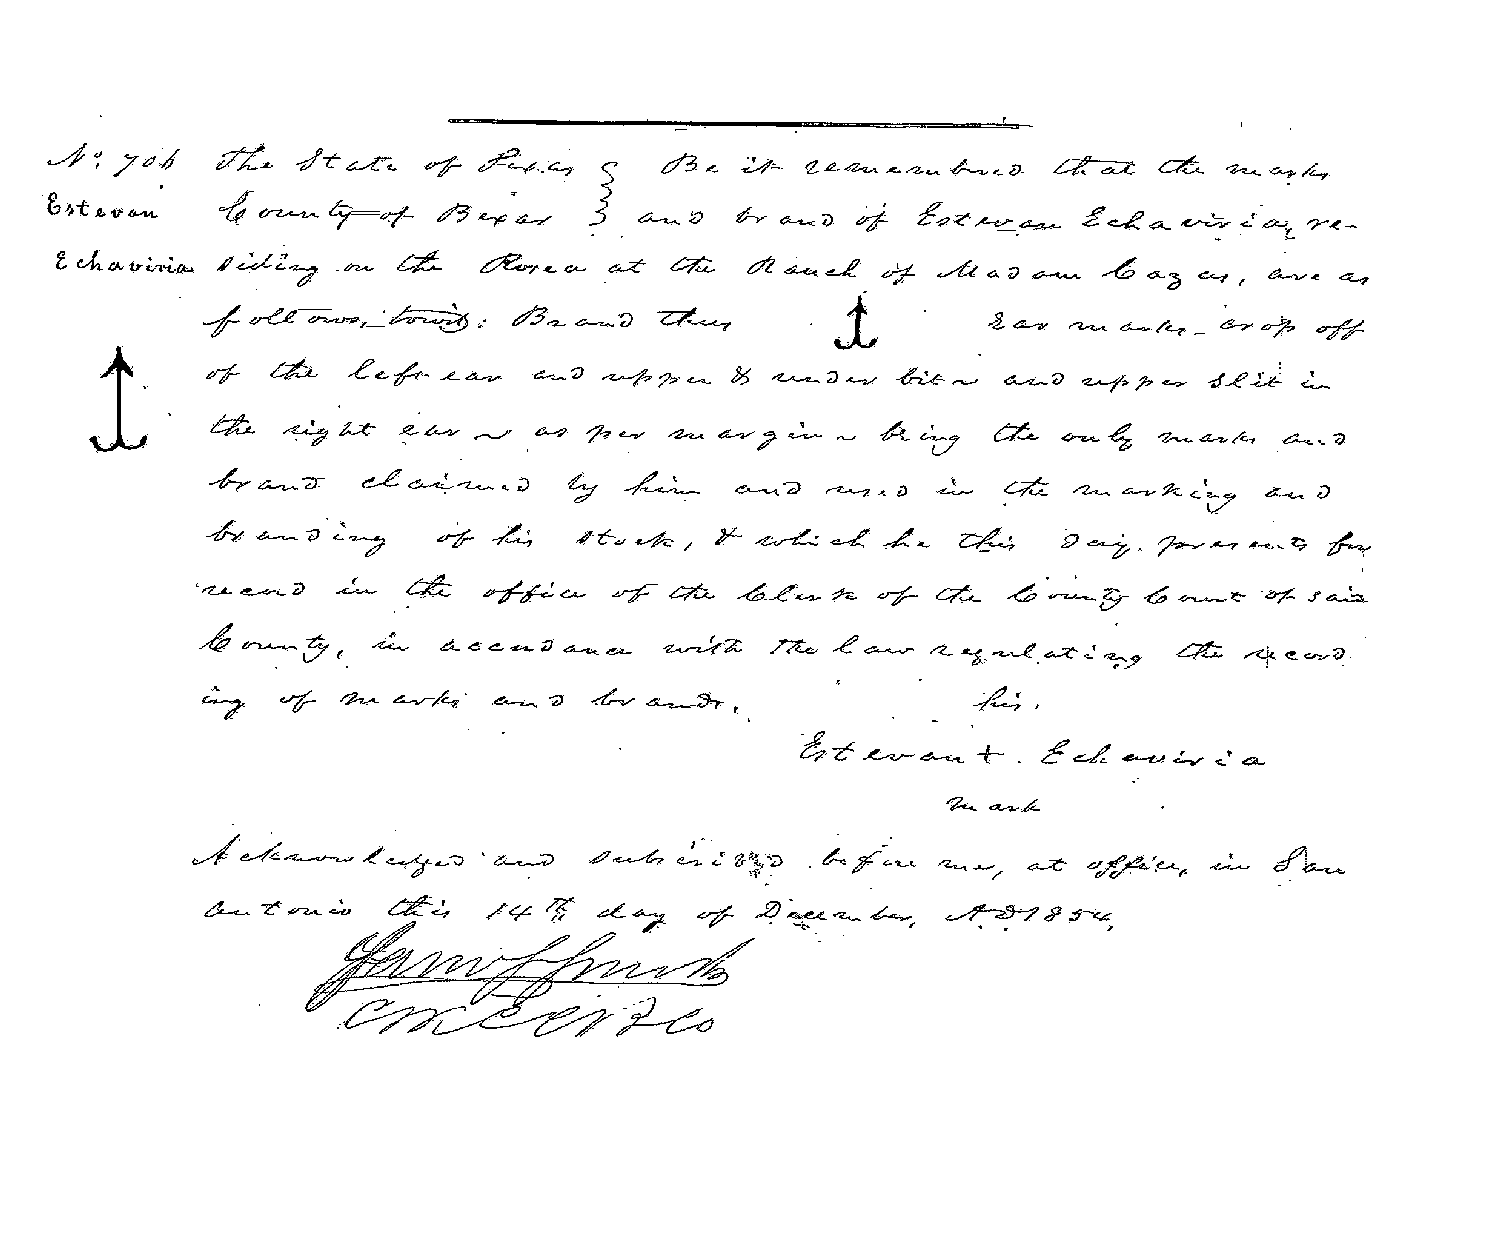 No. 706 The State of Texas } Be it remembered that the marks
Estevan County of Bexar } and brand of Estevan Echaviria, re-
Echaviria siding on the Rosea at the Ranch of Madam Cazas, are as
follows, towit: Brand thus Ear marks - crop off
of the left ear and upper & under bit ~ and upper slit in
the right ear ~ as per margin ~ being the only marks and
brand claimed by him and used in the marking and
branding of his stock, & which he this day presents for
record in the office of the Clerk of the County Court of said
County, in accordance with the law regulating the record
ing of marks and brands.
his
Estevan + Echaviria
mark
Acknowledged and subscribed before me, at office, in San
Antonio this 14th day of December, AD 1854,
CKCCBCo